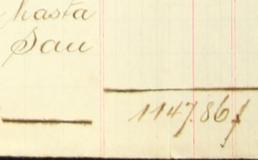 hasta
San
1147.86 f